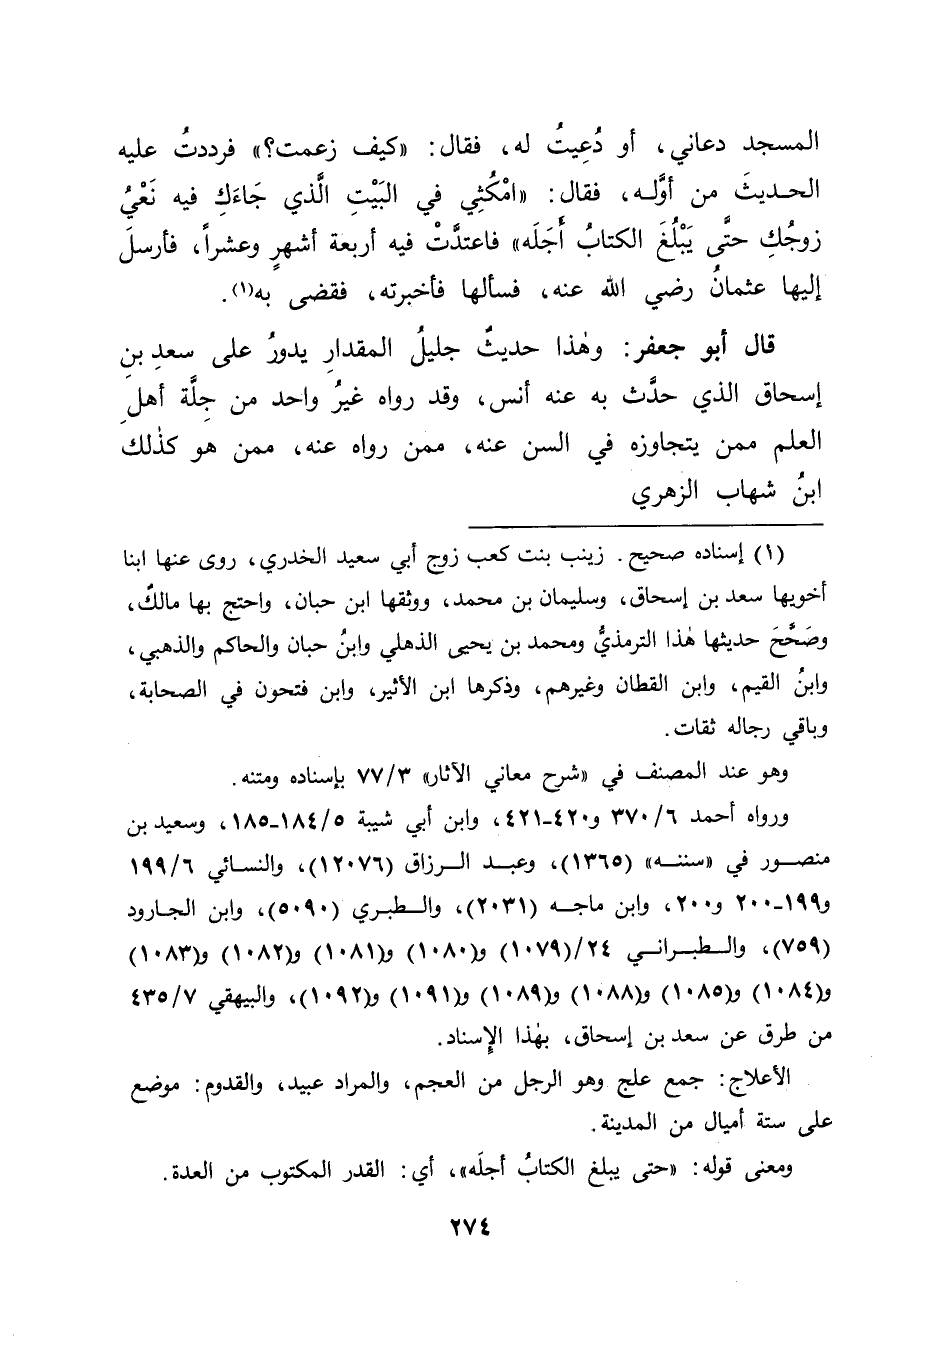 المسجد دعاني، أو دُعِيتُ له، فقال: «كيف زعمت؟» فرددتُ عليه
الحديثَ من أوَّله، فقال: «امْكُثِي في البَيْتِ الَّذي جَاءَكِ فيه نَعْيُ
زوجُكِ حتَّى يَبْلُغَ الكتابُ أَجَلَه» فاعتدَّتْ فيه أربعة أشهرٍ وعشراً، فأرسلَ
إليها عثمانُ رضي الله عنه، فسألها فأخبرته، فقضى به(١).
قال أبو جعفر: وهٰذا حديثٌ جليلُ المقدارِ يدورُ على سعدِ بنِ
إسحاق الذي حدَّث به عنه أنس، وقد رواه غيرُ واحد من جِلَّة أهلِ
العلم ممن يتجاوزه في السن عنه، ممن رواه عنه، ممن هو كذٰلك
ابنُ شهاب الزهري
(١) إسناده صحيح. زينب بنت كعب زوج أبي سعيد الخدري، روى عنها ابنا
أخويها سعد بن إسحاق، وسليمان بن محمد، ووثقها ابن حبان، واحتج بها مالكٌ،
وصَحَّحَ حديثها هٰذا الترمذيُّ ومحمد بن يحيى الذهلي وابنُ حبان والحاكم والذهبي،
وابنُ القيم، وابن القطان وغيرهم، وذكرها ابن الأثير، وابن فتحون في الصحابة،
وباقي رجاله ثقات.
وهو عند المصنف في «شرح معاني الآثار» ٧٧/٣ بإسناده ومتنه.
ورواه أحمد ٣٧٠/٦ و٤٢٠-٤٢١، وابن أبي شيبة ١٨٤/٥-١٨٥، وسعيد بن
منصور في «سننه» (١٣٦٥)، وعبد الرزاق (١٢٠٧٦)، والنسائي ١٩٩/٦
و١٩٩-٢٠٠ و٢٠٠، وابن ماجه (٢٠٣١)، والطبري (٥٠٩٠)، وابن الجارود
(٧٥٩)، والطبراني ٢٤/(١٠٧٩) و(١٠٨٠) و(١٠٨١) و(١٠٨٢) و(١٠٨٣)
و(١٠٨٤) و(١٠٨٥) و(١٠٨٨) و(١٠٨٩) و(١٠٩١) و(١٠٩٢)، والبيهقي ٤٣٥/٧
من طرق عن سعد بن إسحاق، بهٰذا الإِسناد.
الأعلاج: جمع علج وهو الرجل من العجم، والمراد عبيد، والقدوم: موضع
على ستة أميال من المدينة.
ومعنى قوله: «حتى يبلغ الكتابُ أجلَه»، أي: القدر المكتوب من العدة.
٢٧٤